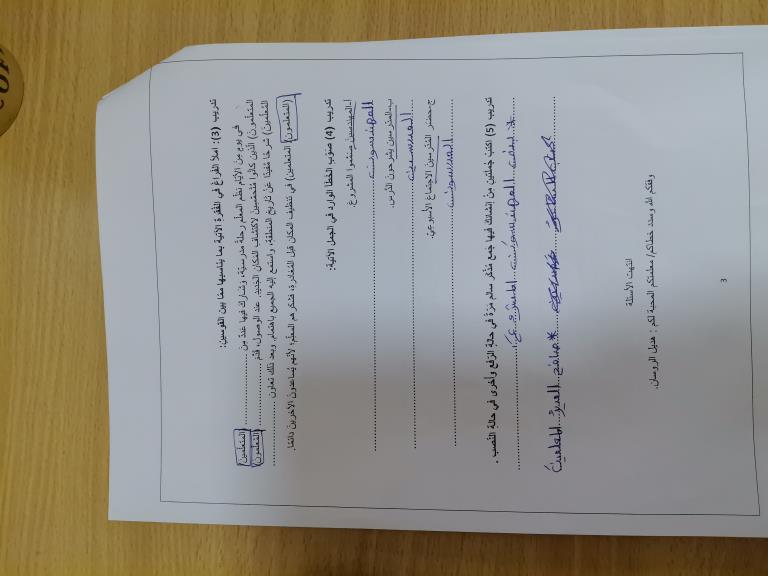 تدريب (3): املأ الفراغ في الفقرة الآتية بما يناسبها ممّا بين القوسين:
في يوم من الأيّام نظّم المعلّم رحلة مدرسيّة، وشارك فيها عددٌ من ............ (المتعلمين/
المتعلمون) الّذين كانُوا مُتَحَمّسينَ لاكتشاف المكان الجديد. عند الوصول، قدّم ............ (المُعلّمون/
المُعلّمين) شرحًا مُفيدًا عَنْ تاريخ المنطقة، واستمع إليه الجميع باهتمام. وبعد ذلك تعاون ............
(المتعلمون/ المتعلمين) في تنظيف المكان قبل المُغادرة، فشكرهم المعلّم؛ لأنّهم يُساعدون الآخرين دائمًا.
تدريب (4) صَوّب الخطأ الوارد في الجمل الآتية:
أ-المهندسين صمّموا المشروع.
المهندسون
ب-المدرسين يشرحون الدّرس.
ج-حضر المُدرّسين الاجتماع الأسبوعيّ.
تدريب (5) اكتبْ جُملتين من إنشائك فيها جمع مذكّر سالم مرّةً في حالة الرّفع وأخرى في حالة النّصب .
* صافح المدير المعلمين
انتهت الأسئلة
وفقكم الله وسدد خطاكم/ معلمتكم المحبة لكم : هديل الروسان.
3
COF